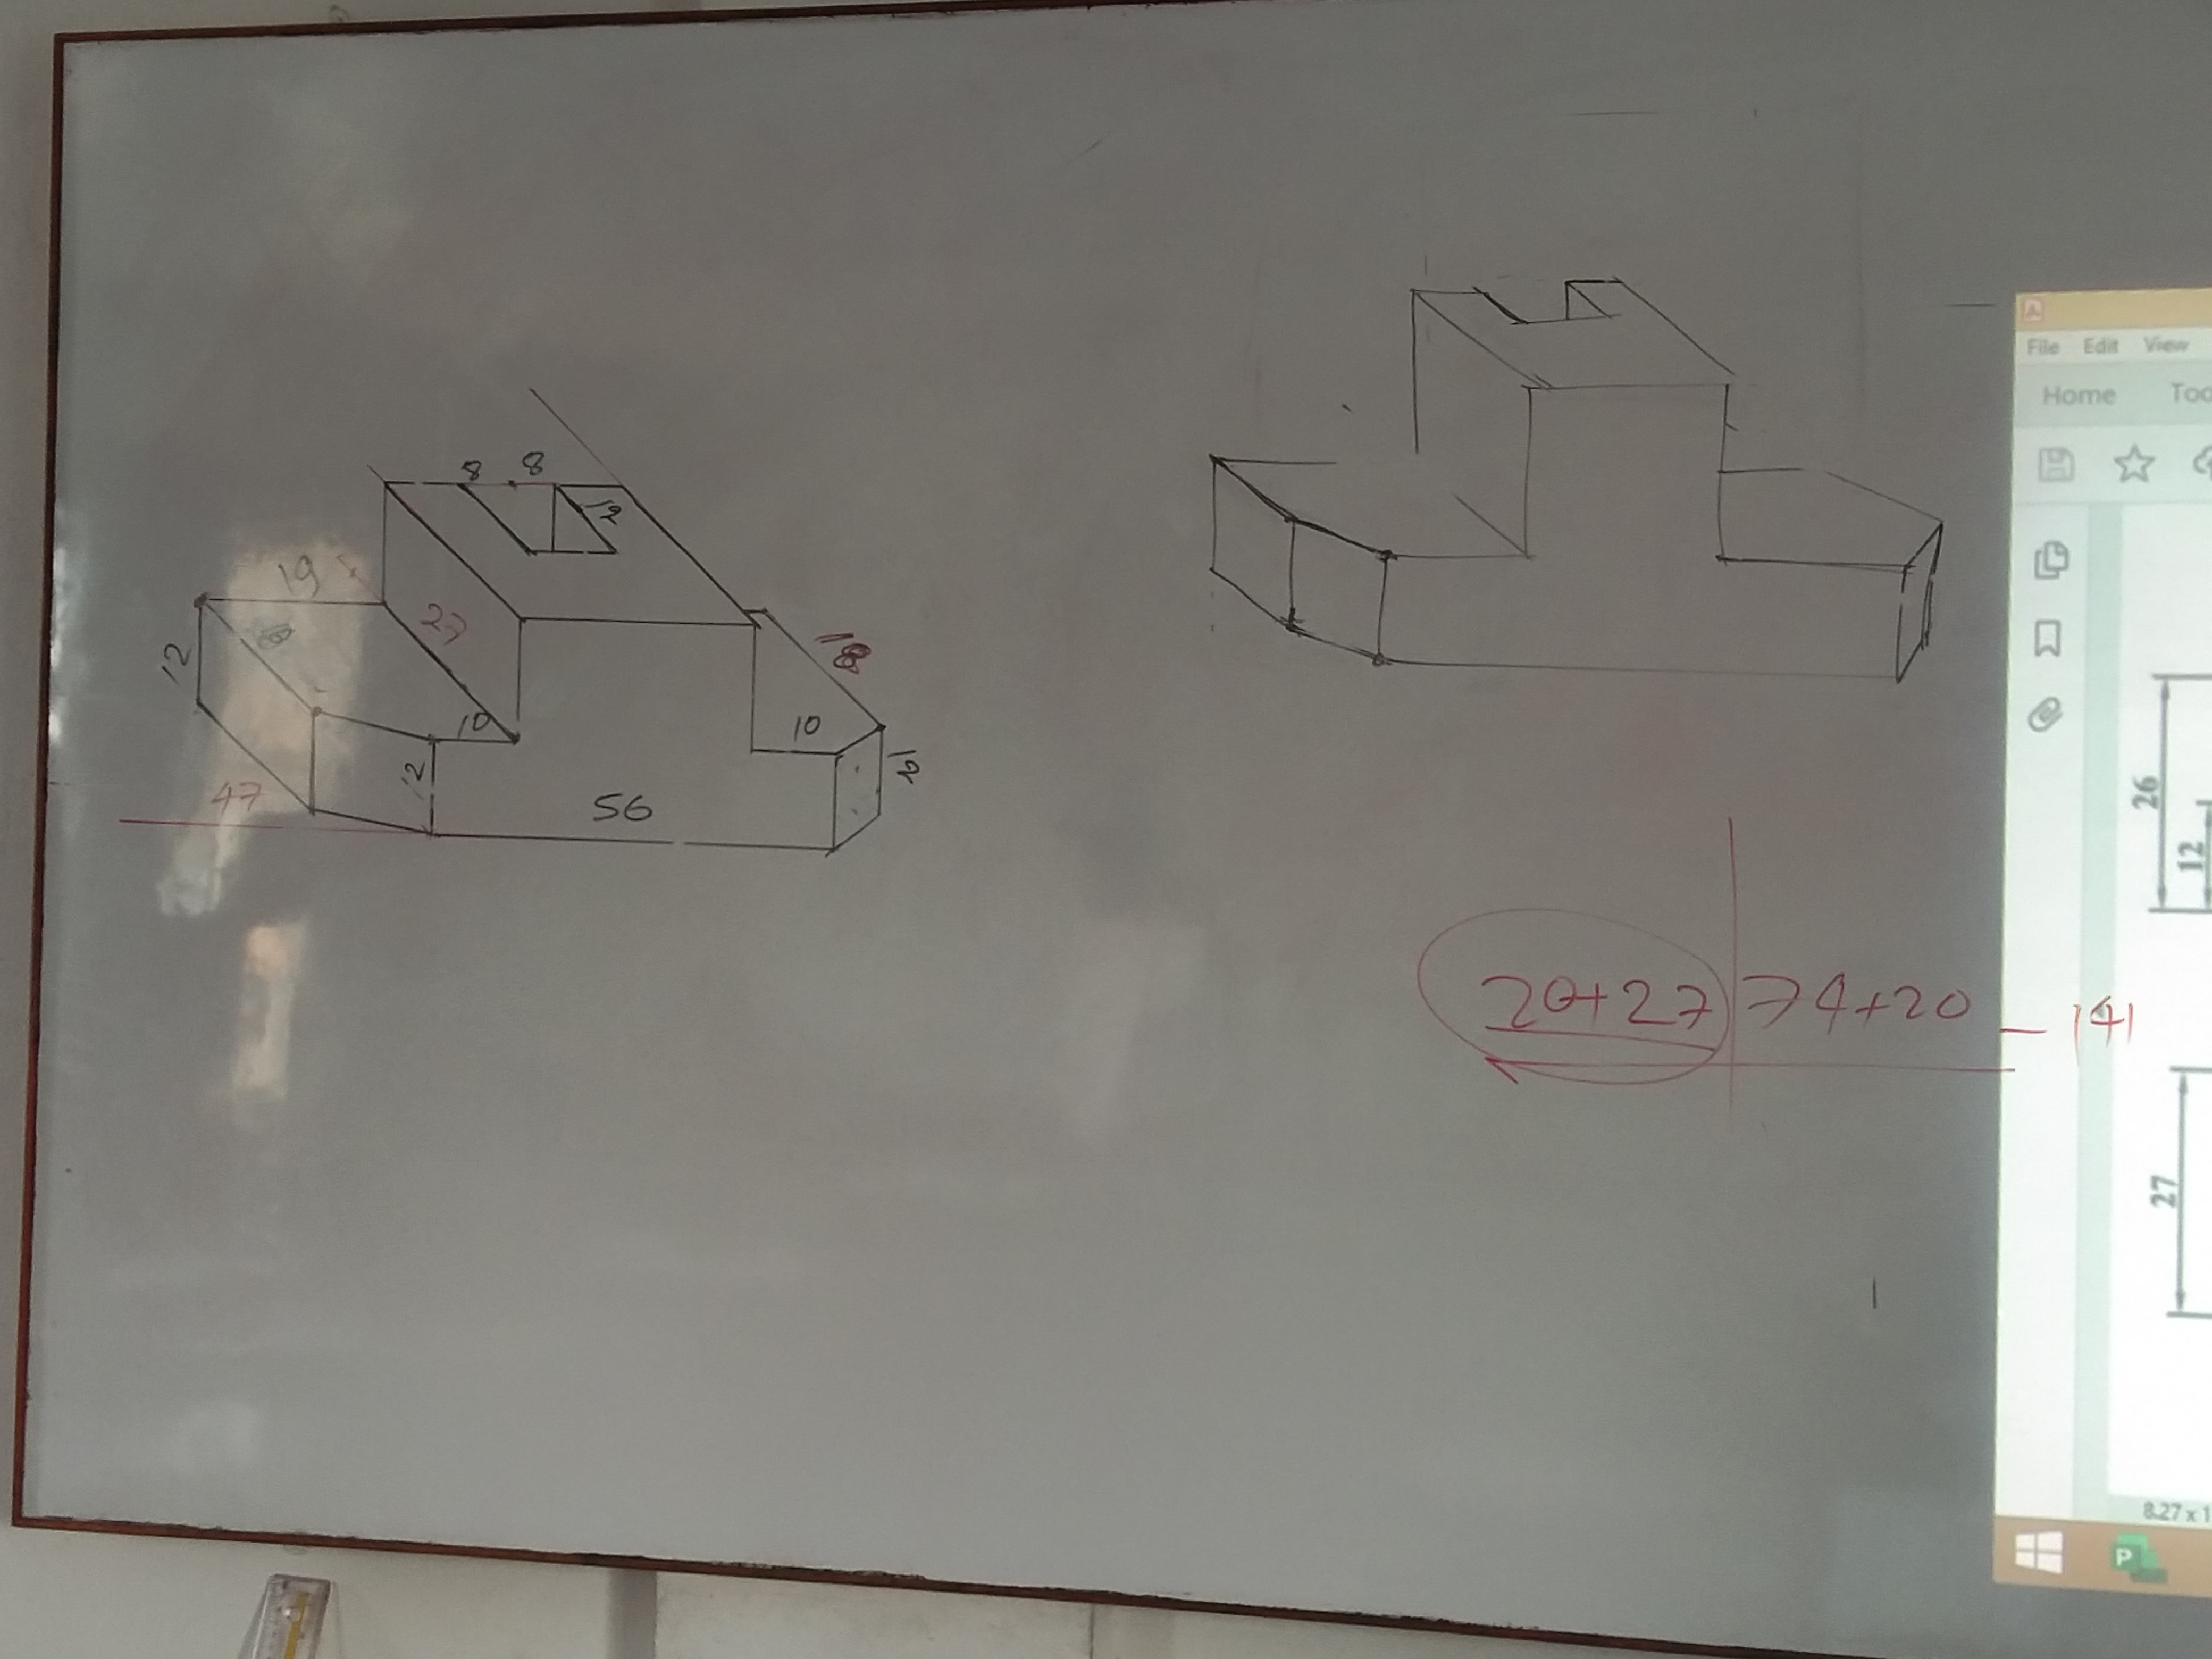 8 8
12
19
27
18
18
12
10
10
12
12
47
56
20+27 74+20 - 141
File Edit View
Home
26
12
27
8.27 x 1
P